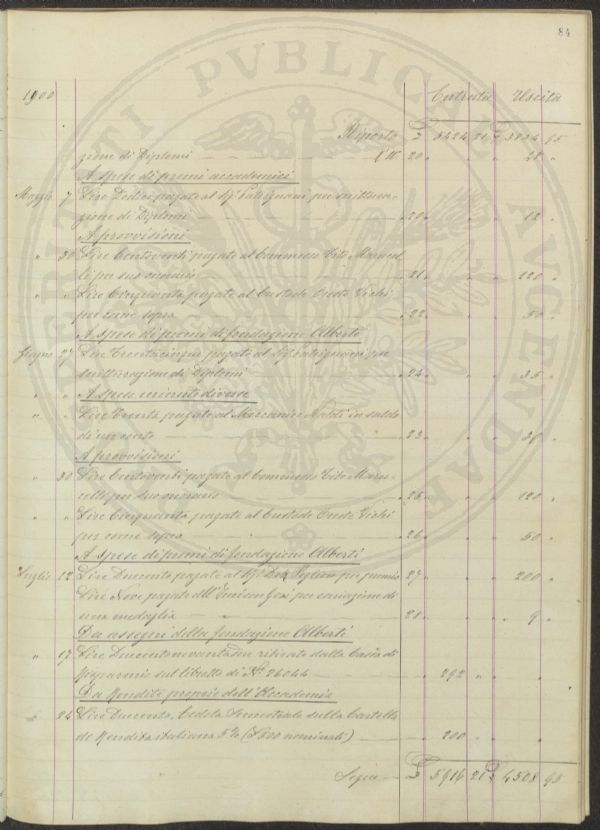 84
1900 Entrata Uscita
Riporto £ 5424 21 £ 3954 95
zione di Diplomi 20 48 "
A spese di premi accademici
Maggio 7 Lire Dodici pagate al Sig. Patrignani per scrittura-
zione di Diplomi " 20 12 "
A provvisioni
" 30 Lire Centoventi pagate al Commesso Tito Marucel
li per suo onorario " 21 120 "
" " Lire Cinquanta pagate al Custode Oreste Vichi
per come sopra " 22 50 "
A spese di premi di fondazione Alberti
Giugno 27 Lire Trentacinque pagate al Sig. Patrignani per
scritturazione di Diplomi " 24 35 "
" " A spese minute diverse
" " Lire Trenta pagate al Meccanico in saldo
di un conto " 23 30 "
A provvisioni
" 30 Lire Centoventi pagate al Commesso Tito Maru-
celli per suo onorario " 25 120 "
" " Lire Cinquanta pagate al Custode Oreste Vichi
per come sopra " 26 50 "
A spese di premi di fondazione Alberti
Luglio 12 Lire Duecento pagate al Sig. per premio " 27 200 "
Lire Nove pagate all'Incisore per coniazione di
una medaglia " 28 9 "
Da assegni della fondazione Alberti
" 17 Lire Duecentonovantadue ritirate dalla Cassa di
Risparmio sul libretto di No. 26044 " 292 "
Da Rendite proprie dell'Accademia
" 24 Lire Duecento, Cedola Semestrale sulla Cartella
di Rendita italiana 5% (£ 500 nominali) " 200 "
Segue £ 5916 21 £ 4508 95
PVBLICAE AVGENDAE